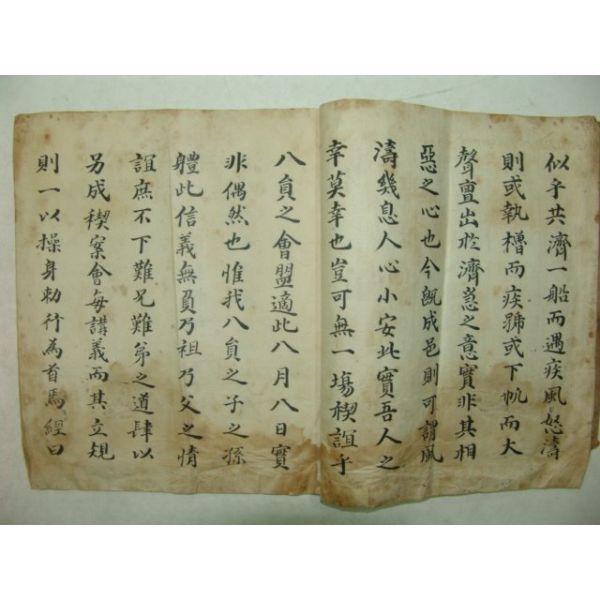 似乎共濟一船而遇疾風怒濤
則或執櫓而疾號或下帆而大
聲亶出於濟急之意實非其相
惡之心也今旣成邑則可謂風
濤幾息人心小安此實吾人之
幸莫幸也豈可無一場稧誼乎
八員之會盟適此八月八日實
非偶然也惟我八員之子之孫
軆此信義無負乃祖乃父之情
誼庶不下難兄難弟之道肆以
另成稧案會每講義而其立規
則一以操身勅行為首焉經曰